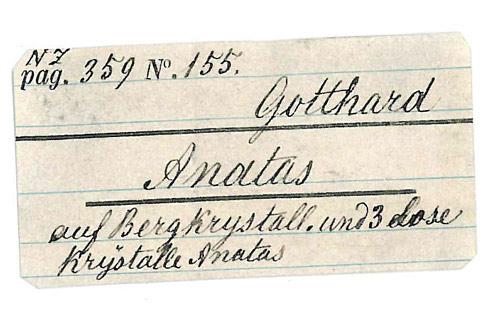 N Z
pag. 359 No. 155.
Gotthard
Anatas
auf Bergkrystall. und 3 lose
Krÿstalle Anatas